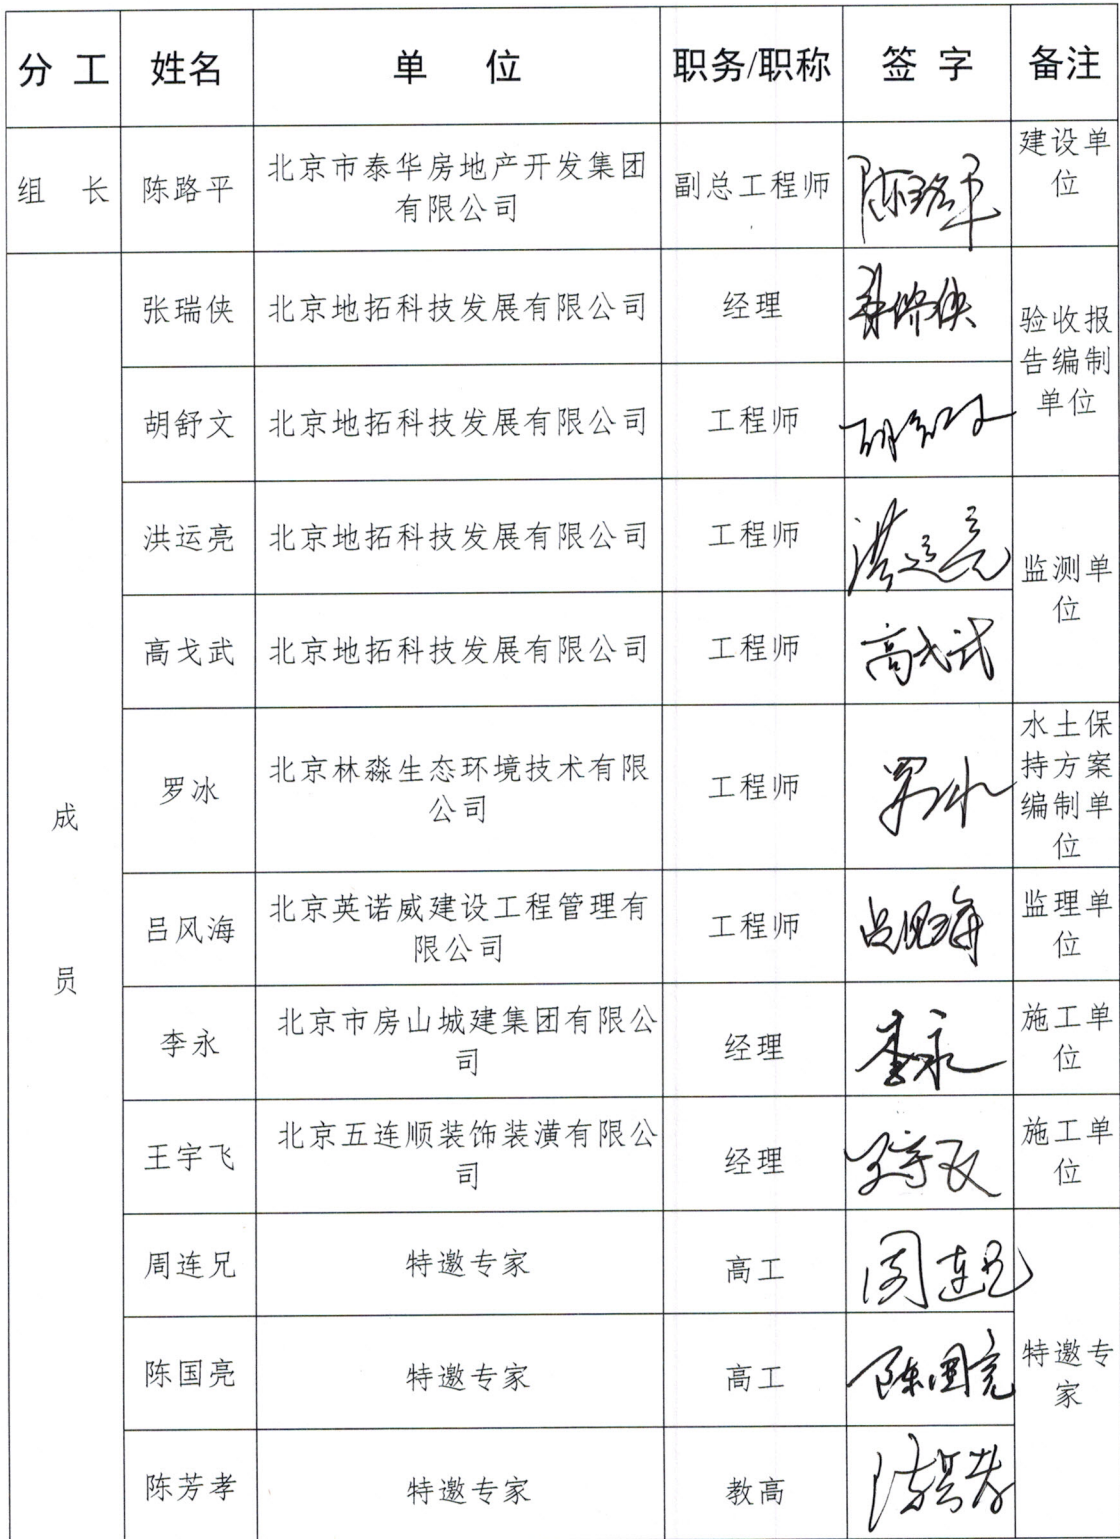 分 工 姓名 单 位 职务/职称 签 字 备注
组 长 陈路平 北京市泰华房地产开发集团
有限公司 副总工程师 陈路平 建设单
位
成
员
张瑞侠 北京地拓科技发展有限公司 经理 张瑞侠 验收报
告编制
单位
胡舒文 北京地拓科技发展有限公司 工程师 胡舒文
洪运亮 北京地拓科技发展有限公司 工程师 洪运亮 监测单
位
高戈武 北京地拓科技发展有限公司 工程师 高戈武
罗冰 北京林淼生态环境技术有限
公司 工程师 罗冰 水土保
持方案
编制单
位
吕风海 北京英诺威建设工程管理有
限公司 工程师 吕风海 监理单
位
李永 北京市房山城建集团有限公
司 经理 李永 施工单
位
王宇飞 北京五连顺装饰装潢有限公
司 经理 王宇飞 施工单
位
周连兄 特邀专家 高工 周连兄 特邀专
家
陈国亮 特邀专家 高工 陈国亮
陈芳孝 特邀专家 教高 陈芳孝